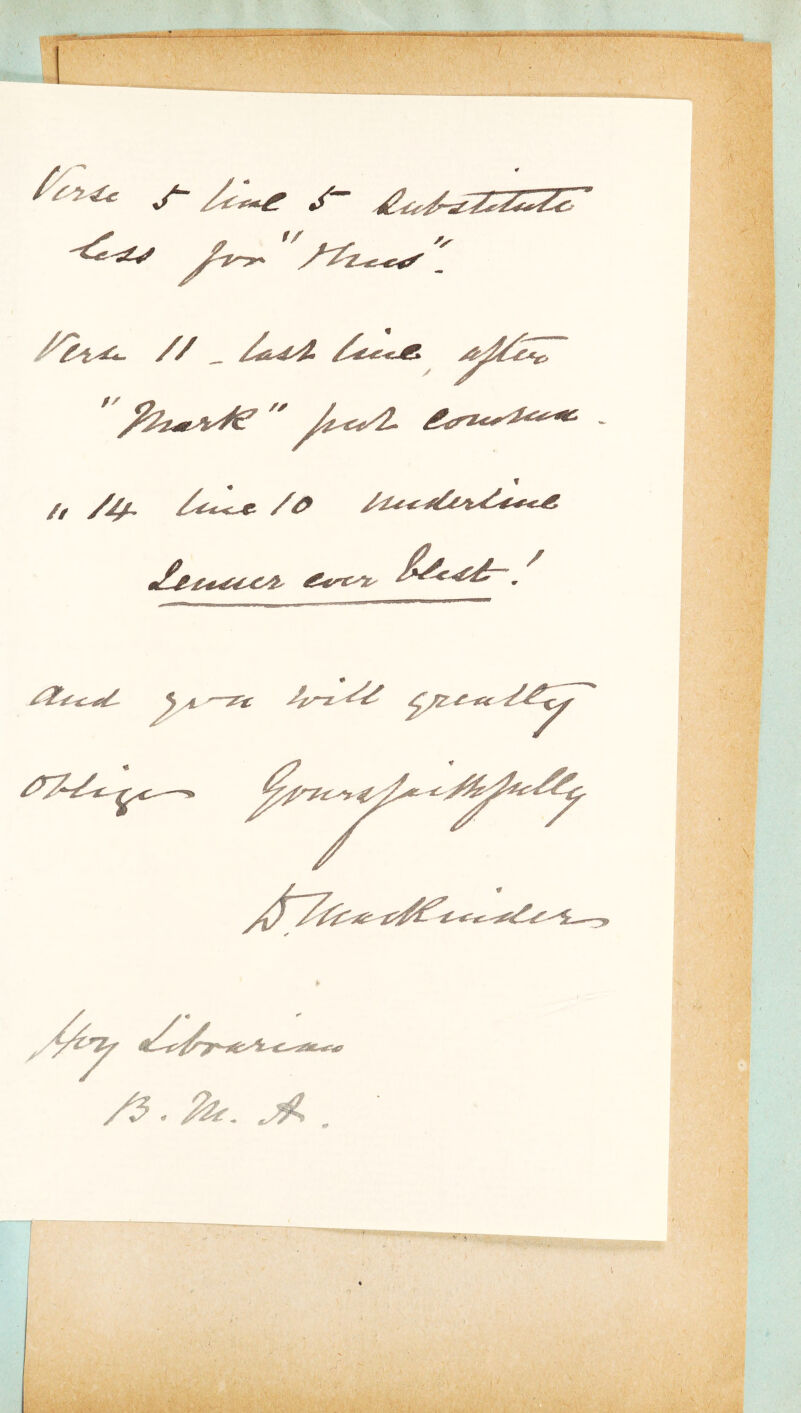 Verse 5 line 5 substitute
less for "thus".
Verse 11 - last line, after
"Mark" put comma.
" 14 line 10 underline
Jenner ever blest!
and you will greatly
oblige Yours faithfully
D. MacKinder
Hoy Librarian
B. M. A.